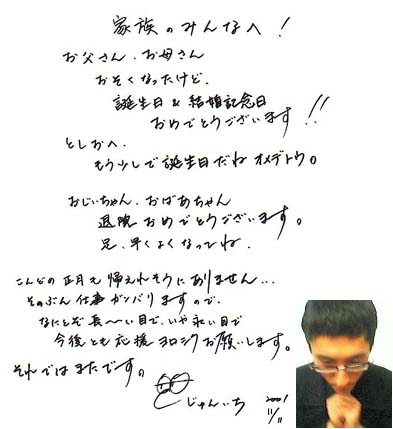 家族のみんなへ！
お父さん、お母さん
おそくなったけど、
誕生日 & 結婚記念日
おめでとうございます!!
としおへ、
もう少しで誕生日だね オメデトウ。
おじいちゃん、おばあちゃん
退院おめでとうございます。
足、早くよくなってね、
こんどの正月も帰えれそうにありません...
そのぶん仕事ガンバリますので、
なにとぞ長〜い目で、いや永い目で
今後とも応援ヨロシクお願いします。
それではまたです。
じゅんいち
2001
11/11